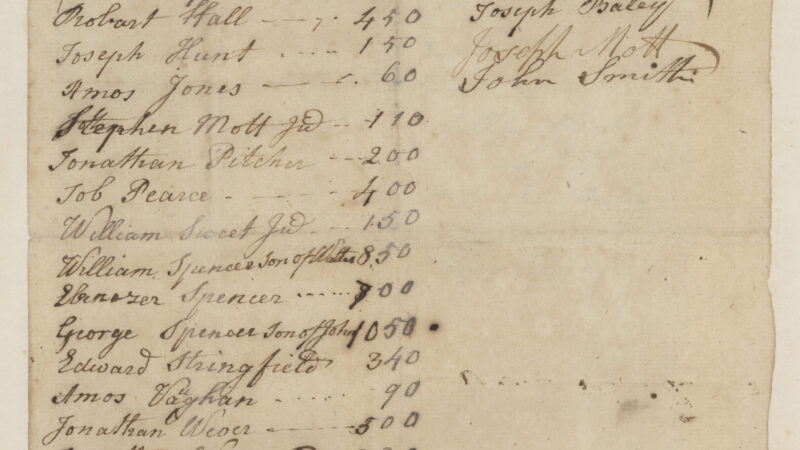 Robart Hall 450
Joseph Hunt 150
Amos Jones 60
Stephen Mott Jud 110
Jonathan Pitcher 200
Job Pearce 400
William Sweet Jud 150
William Spencer Son of 850
Ebenezer Spencer 900
George Spencer Son of John 1050
Edward Stringfield 340
Amos Vaghan 90
Jonathan Wever 500
Joseph Baley
Joseph Mott
John Smith